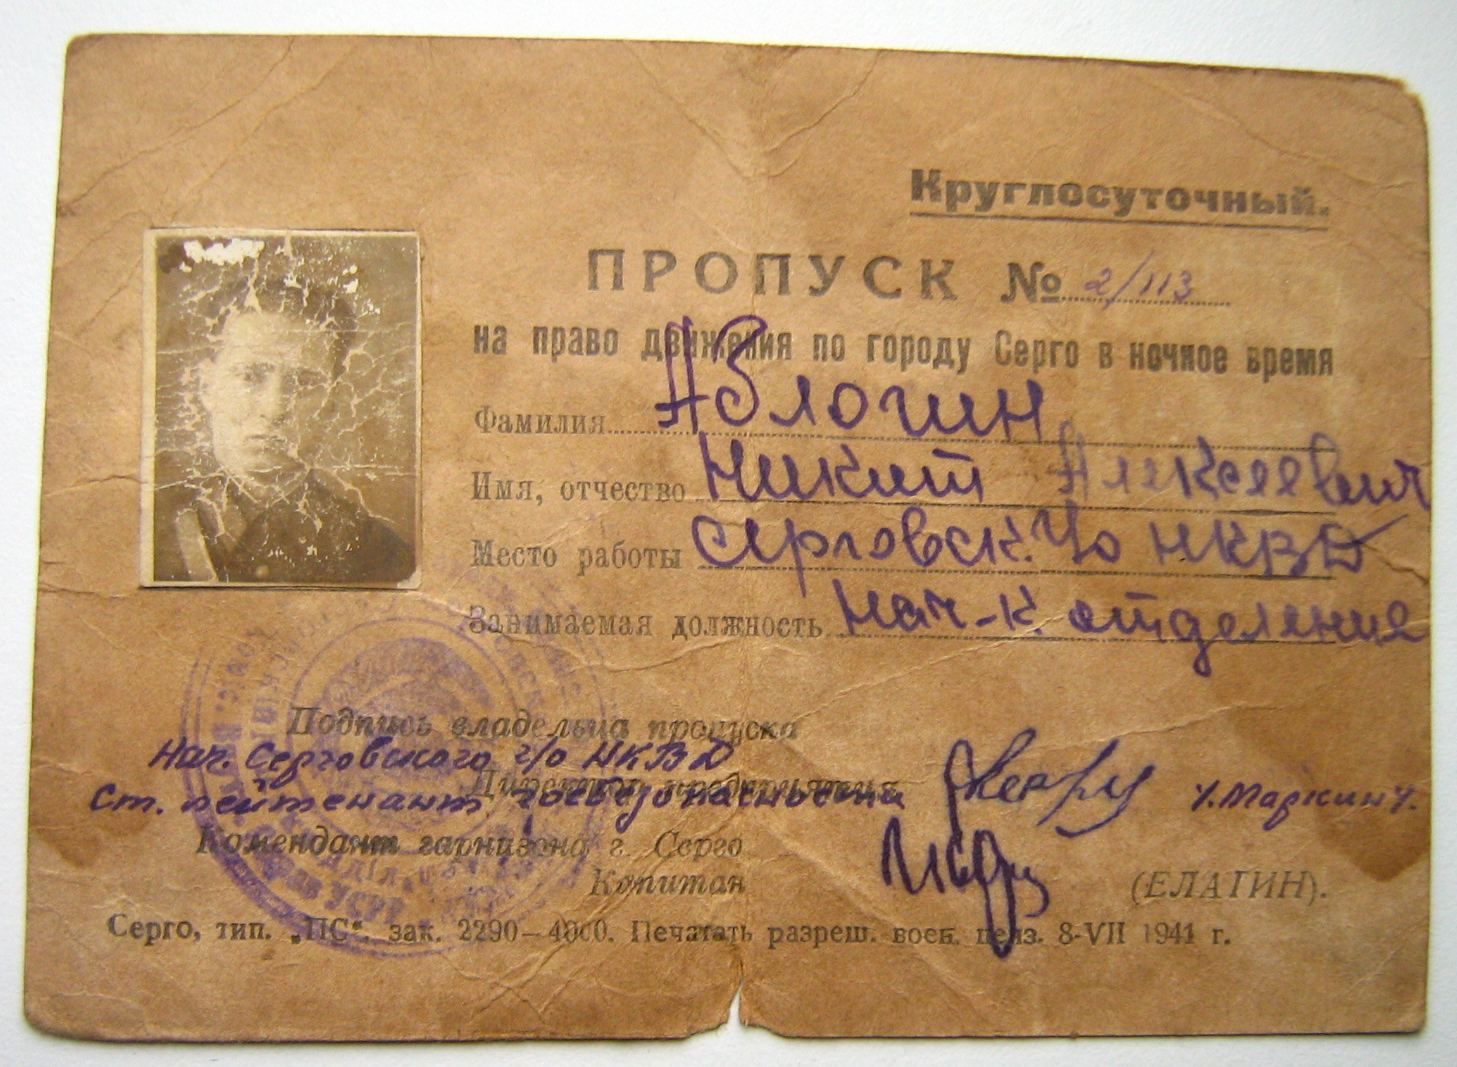 Круглосуточный.
ПРОПУСК № 2/113
на право движения по городу Серго в ночное время
Фамилия Аблогин
Имя, отчество Никит Алексеевич
Место работы Серговск. ГО НКВД
Занимаемая должность Нач-к отделения
Подпись владельца пропуска
Нач. Серговского г/о НКВД
Директор предприятия
Ст. лейтенант госбезопасности /. Маркин /.
Комендант гарнизона г. Серго
Капитан (ЕЛАГИН).
Серго, тип. „ПС“. зак. 2290—4000. Печатать разреш. воен. ценз. 8-VII 1941 г.